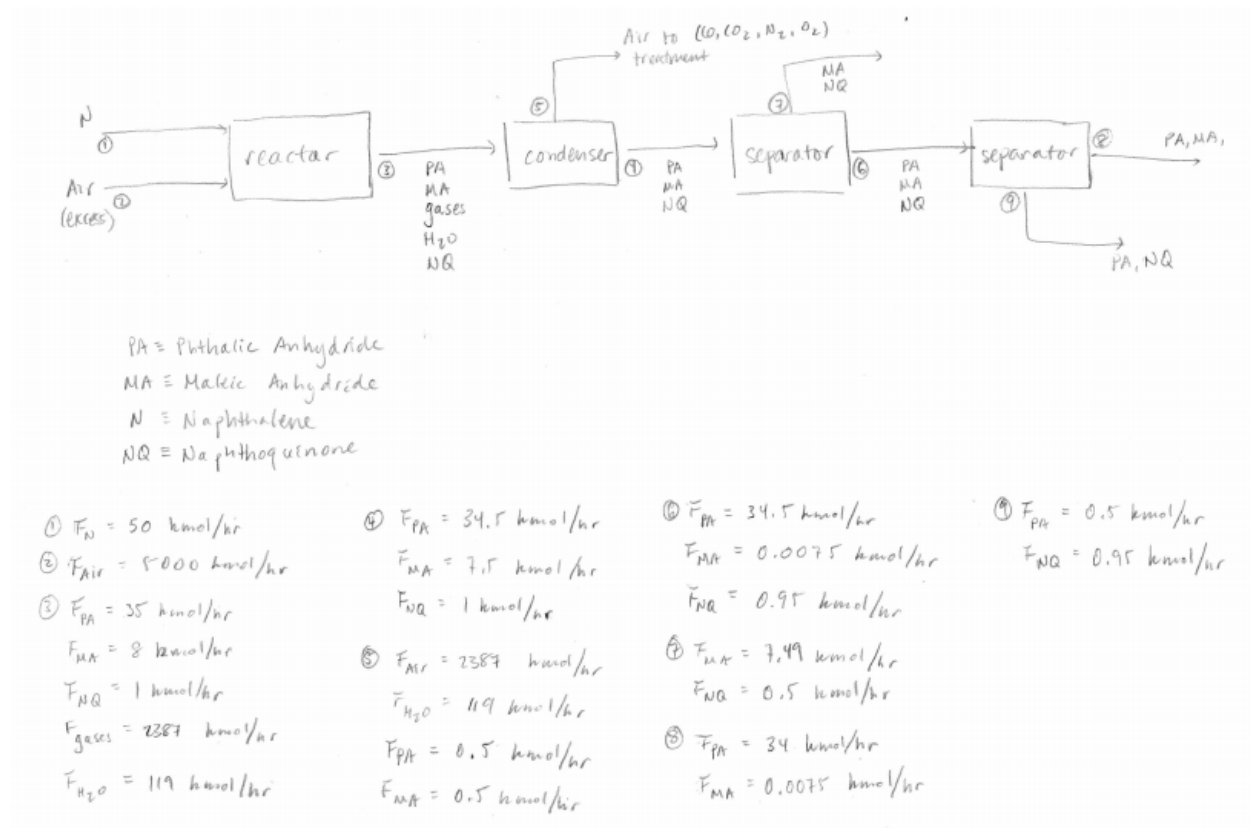 Air to (CO, CO2, N2, O2)
treatment
MA
NQ
⑤
⑦
N
①
reactar
③
condenser
④
separator
⑥
separator
⑧
PA, MA,
Air
②
(excess)
PA
MA
gases
H2O
NQ
PA
MA
NQ
PA
MA
NQ
⑨
PA, NQ
PA ≡ Phthalic Anhydride
MA ≡ Maleic Anhydride
N ≡ Naphthalene
NQ ≡ Naphthoquinone
① F_N = 50 kmol/hr
② F_Air = 5000 kmol/hr
③ F_PA = 35 kmol/hr
F_MA = 8 kmol/hr
F_NQ = 1 kmol/hr
F_gases = 2387 kmol/hr
F_H2O = 119 kmol/hr
④ F_PA = 34.5 kmol/hr
F_MA = 7.5 kmol/hr
F_NQ = 1 kmol/hr
⑤ F_Air = 2387 kmol/hr
F_H2O = 119 kmol/hr
F_PA = 0.5 kmol/hr
F_MA = 0.5 kmol/hr
⑥ F_PA = 34.5 kmol/hr
F_MA = 0.0075 kmol/hr
F_NQ = 0.95 kmol/hr
⑦ F_MA = 7.49 kmol/hr
F_NQ = 0.5 kmol/hr
⑧ F_PA = 34 kmol/hr
F_MA = 0.0075 kmol/hr
⑨ F_PA = 0.5 kmol/hr
F_NQ = 0.95 kmol/hr